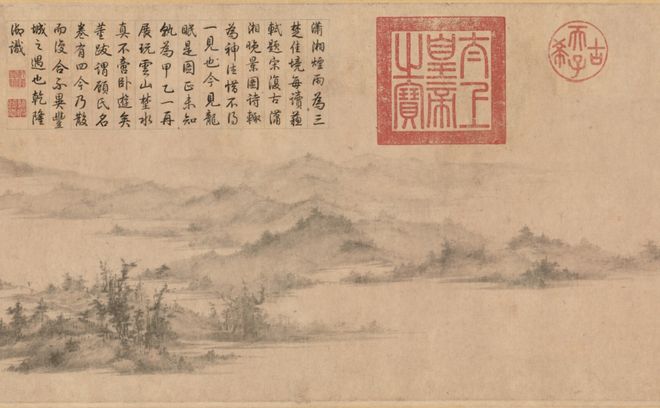 古希天子
太上皇帝之寶
瀟湘煙雨為三
楚佳境每讀蘇
軾題宋復古瀟
湘晚景圖詩輙
為神往惜不得
一見也今見龍
眠是圖正未知
孰為甲乙一再
展玩雲山楚水
真不啻卧遊矣
董跋謂顧氏名
卷有四今乃散
而復合不異豐
城之遇也乾隆
御識